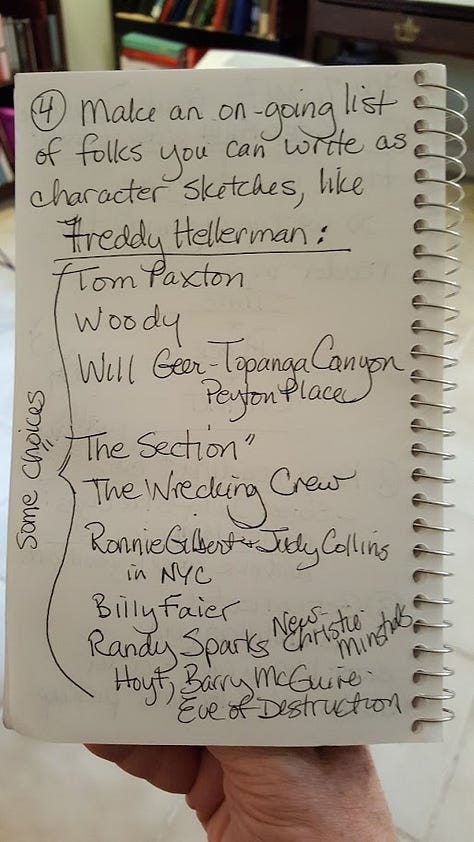 ④ Make an on-going list
of folks you can write as
character sketches, like
Freddy Hellerman:
Tom Paxton
Woody
Will Geer - Topanga Canyon
Peyton Place
Some choices
"The Section"
The Wrecking Crew
Ronnie Gilbert + Judy Collins
in NYC
Billy Faier
Randy Sparks New Christie Minstrals
Hoyt, Barry McGuire -
Eve of Destruction